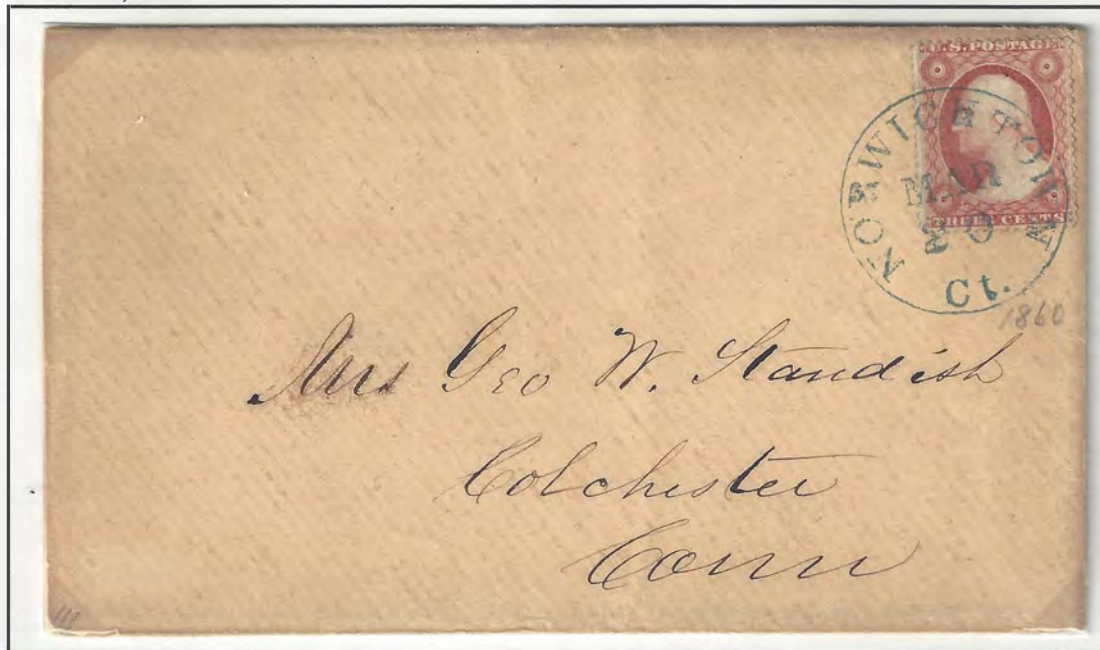 U.S. POSTAGE
THREE CENTS
NORWICH TOWN
MAR
20
Ct.
1860
Mrs Geo W. Standish
Colchester
Conn